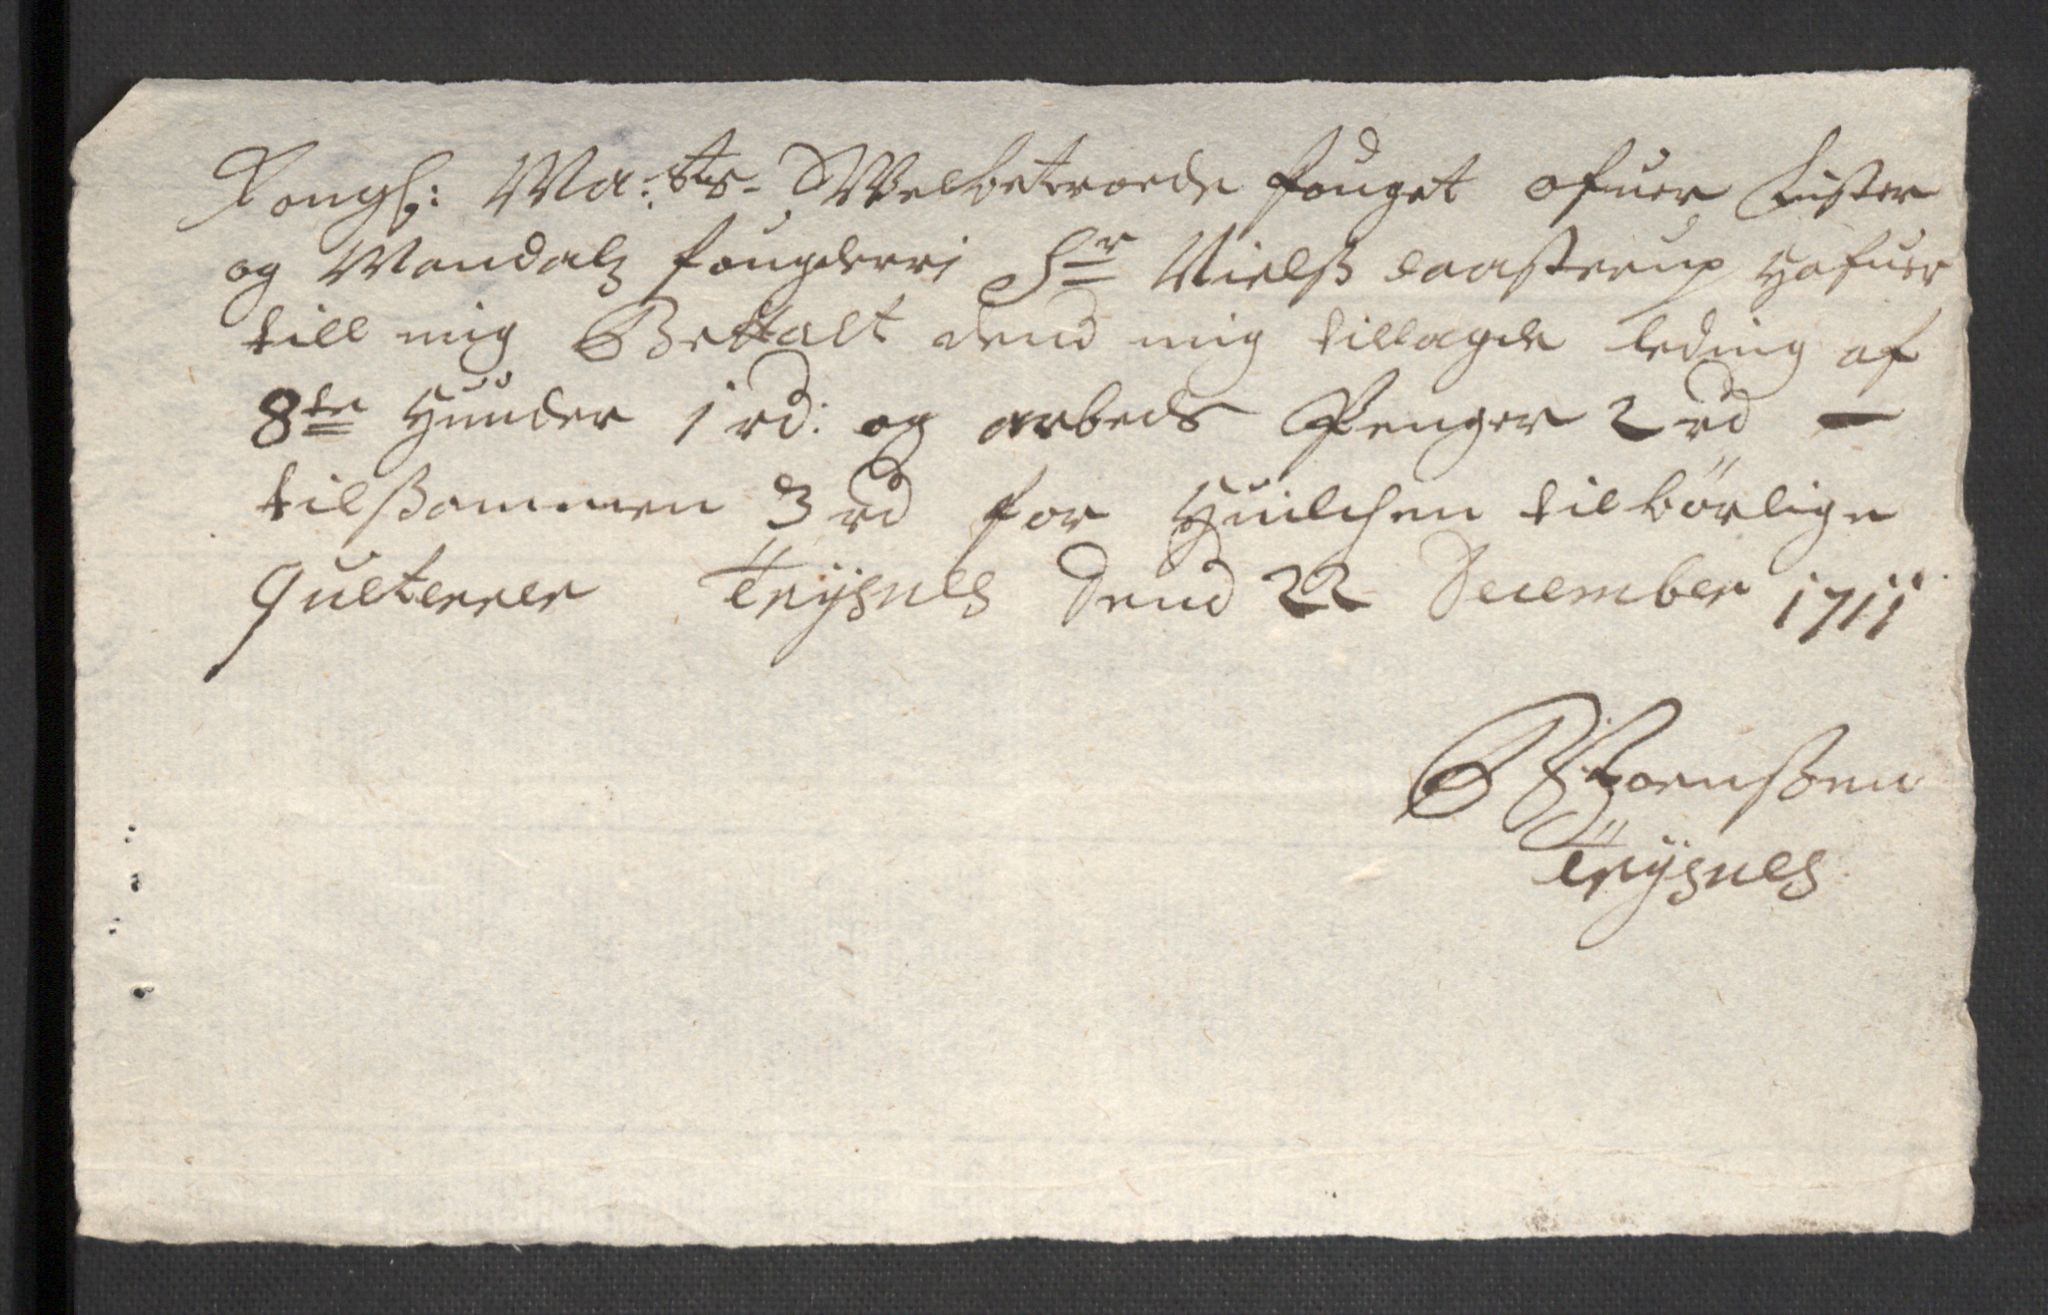 Kongl: Ma:tts Welbetroede fouget ofuer Lister
og Mandalz fougderri Sr Nielß Taastrup Hafuer
till mig Bettalt dend mig tillagde leding af
8te Hüüder 1 rd: og arbeds Penger 2 rd —
tilßammen 3 rd for Huilchen tilbörlige
quiterrer Trÿsnes Dend 22 December 1711
Trÿsnes